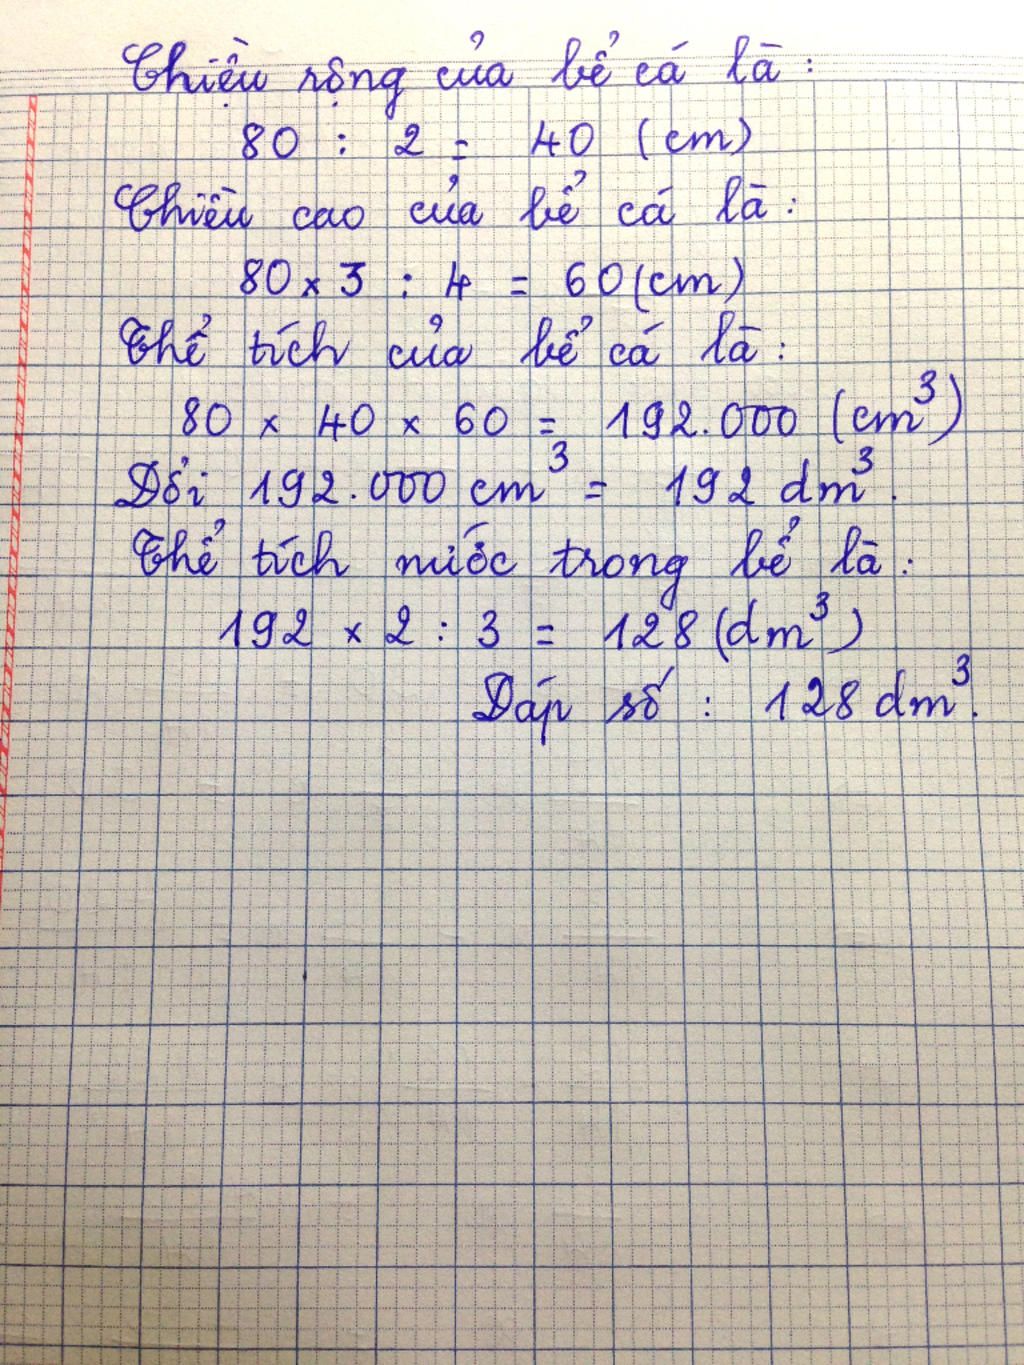 Chiều rộng của bể cá là :
80 : 2 = 40 (cm)
Chiều cao của bể cá là :
80 x 3 : 4 = 60 (cm)
Thể tích của bể cá là :
80 x 40 x 60 = 192.000 (cm³)
Đổi 192.000 cm³ = 192 dm³.
Thể tích nước trong bể là :
192 x 2 : 3 = 128 (dm³)
Đáp số : 128 dm³.